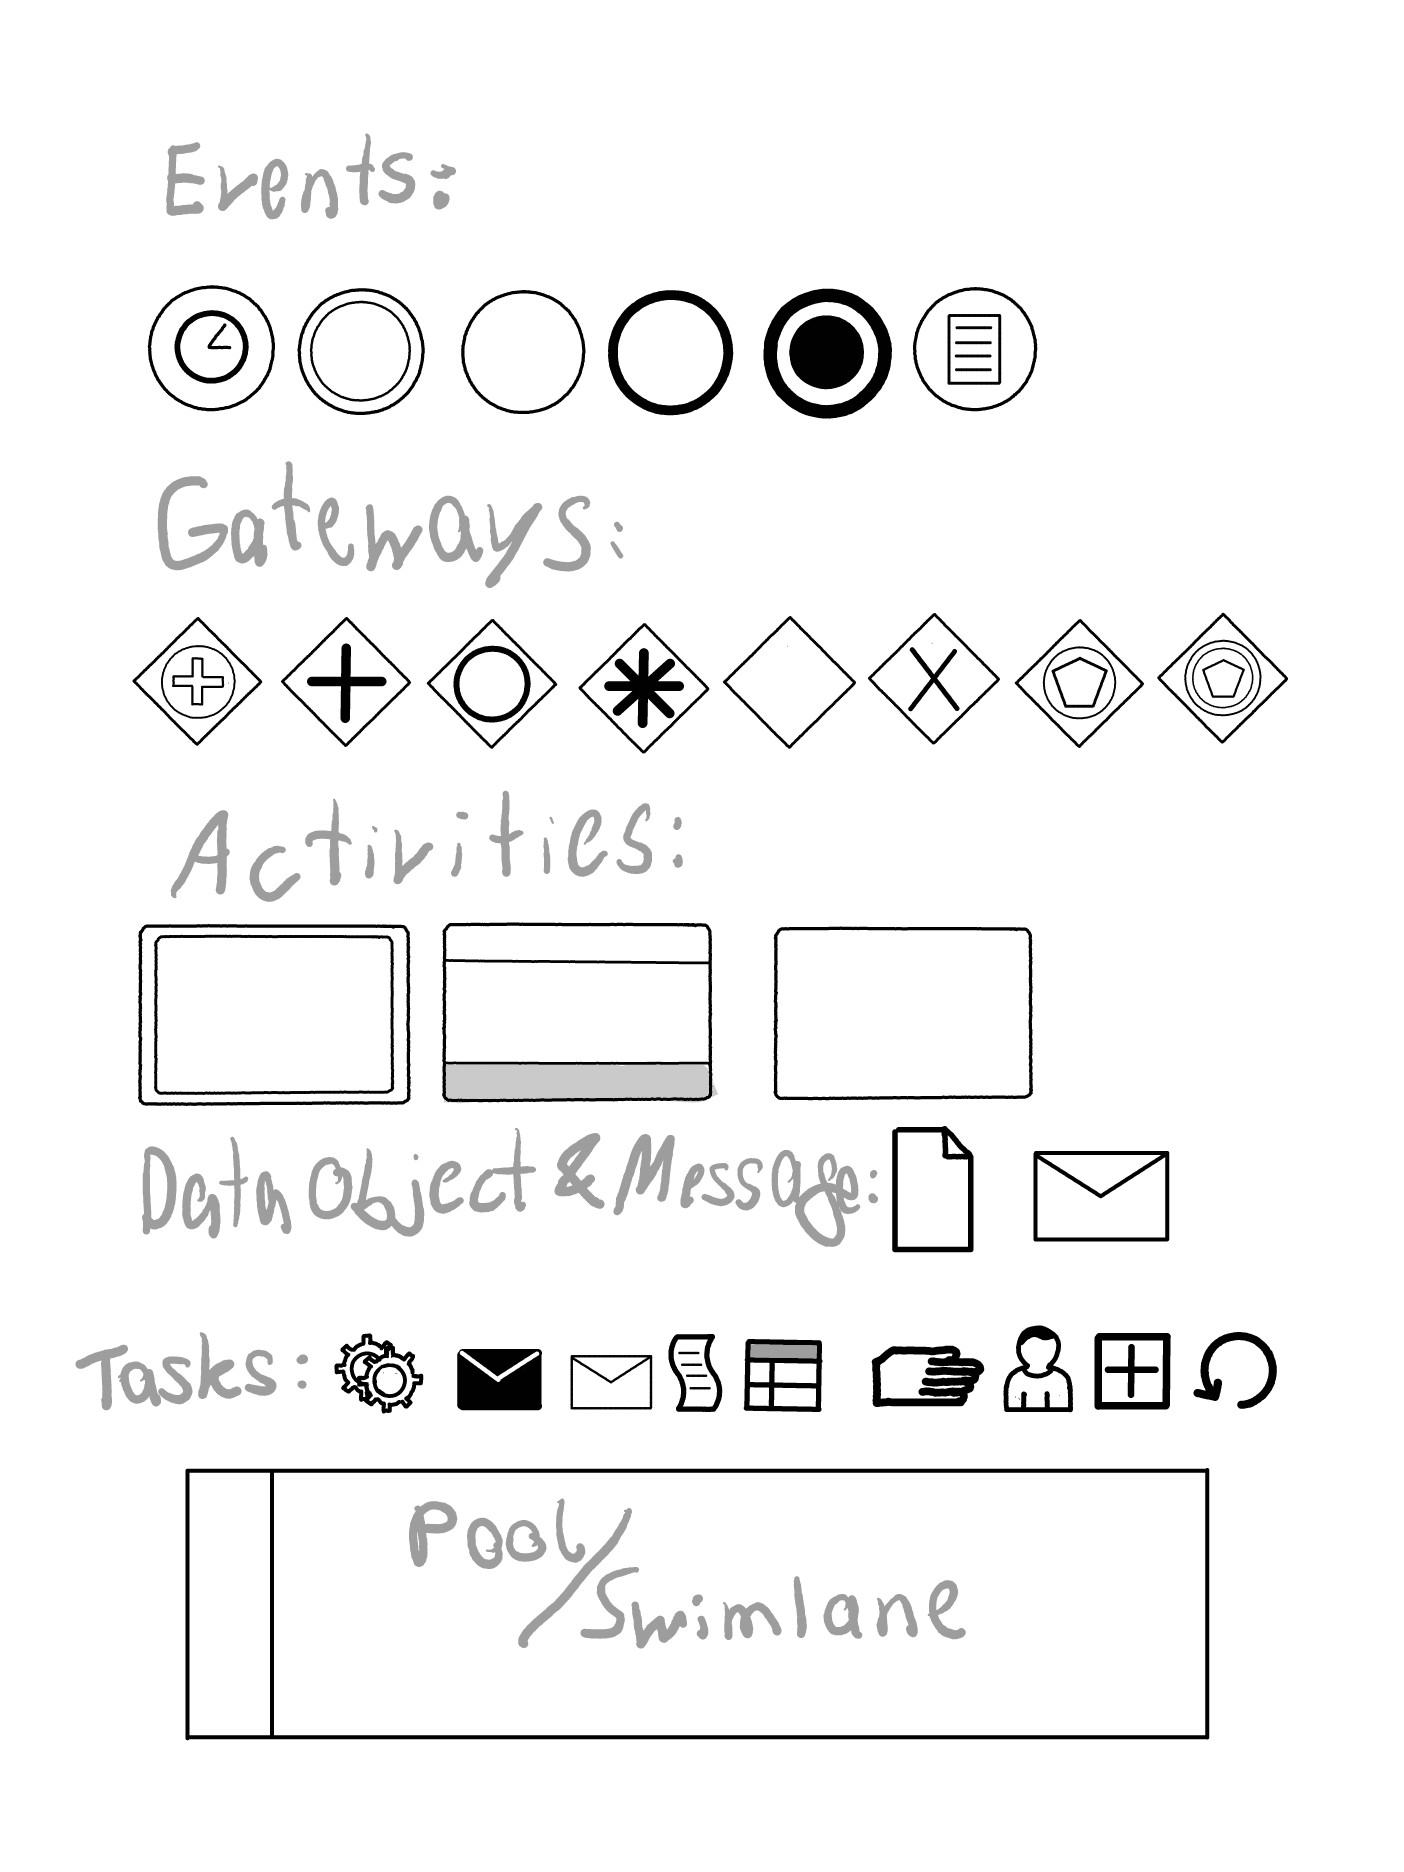 Events:
Gateways:
Activities:
Data Object & Message:
Tasks:
Pool/
Swimlane